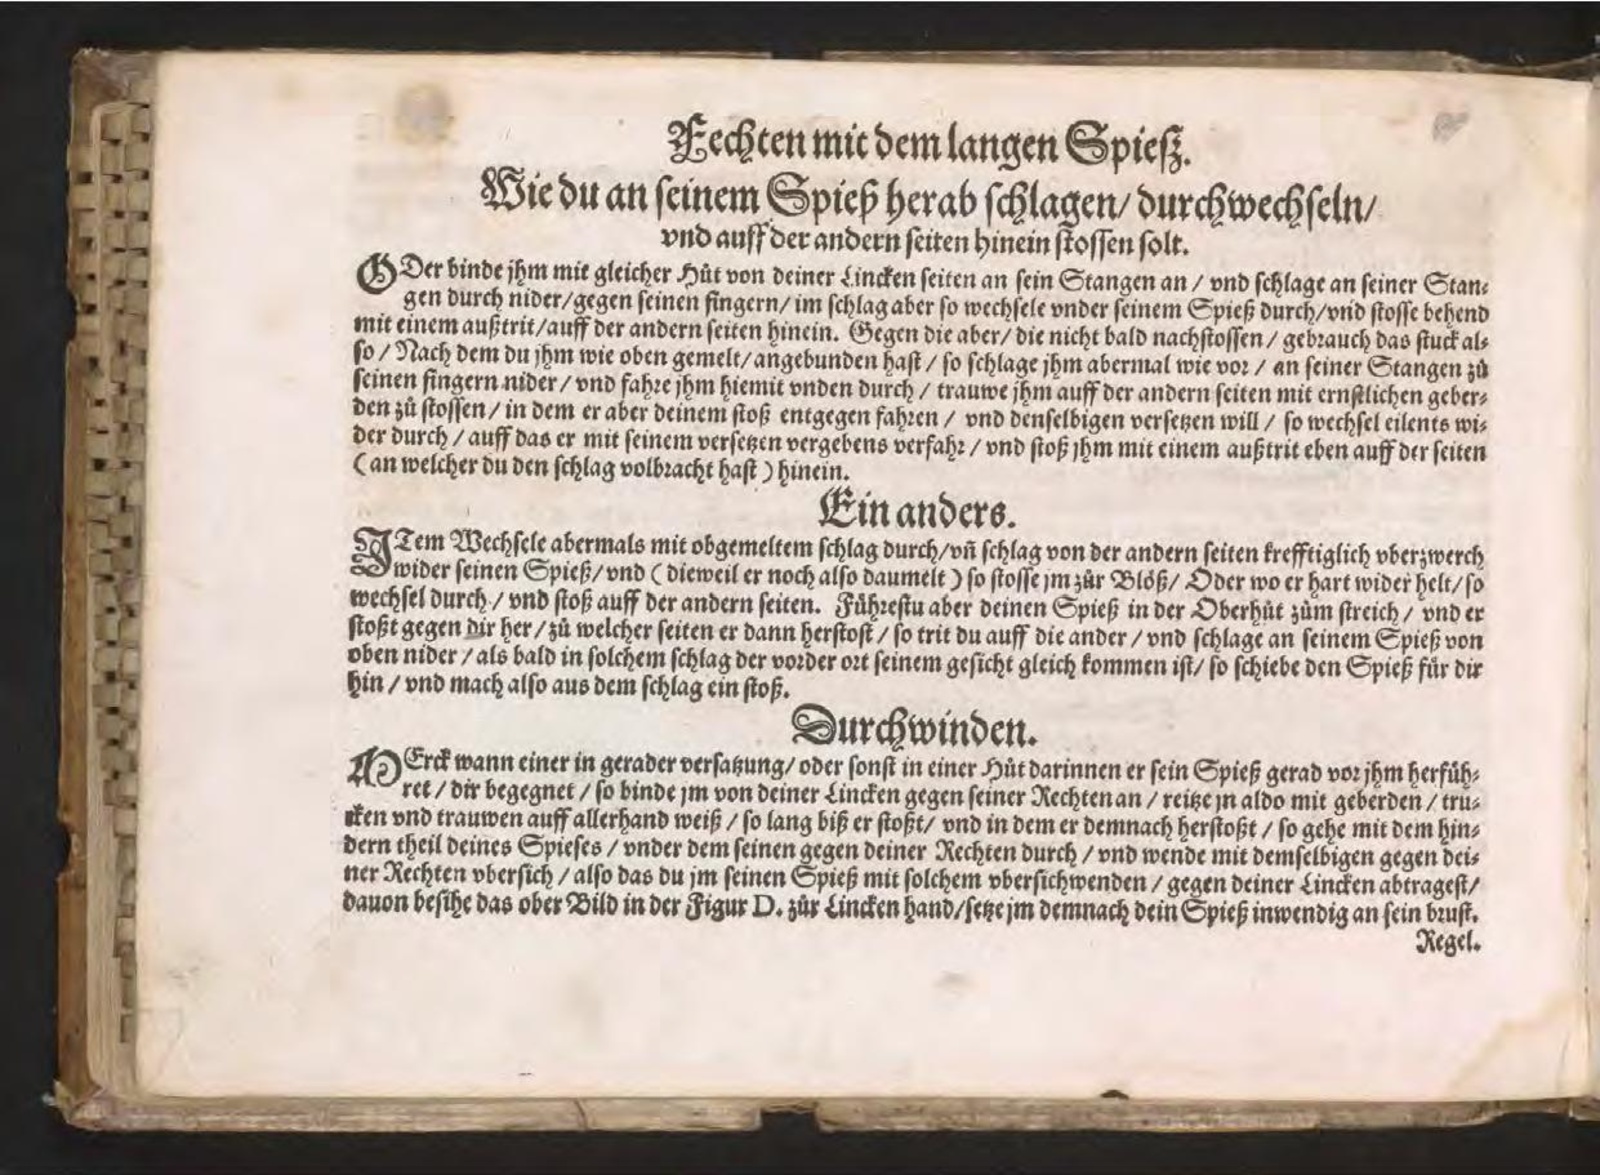 Fechten mit dem langen Spiesz.
Wie du an seinem Spieß herab schlagen/ durchwechseln/
vnd auff der andern seiten hinein stossen solt.
ODer binde jhm mit gleicher Hůt von deiner Lincken seiten an sein Stangen an / vnd schlage an seiner Stan⸗
gen durch nider/gegen seinen fingern/ im schlag aber so wechsele vnder seinem Spieß durch/vnd stosse behend
mit einem außtrit/auff der andern seiten hinein. Gegen die aber/ die nicht bald nachstossen / gebrauch das stuck al⸗
so / Nach dem du jhm wie oben gemelt/angebunden hast / so schlage jhm abermal wie vor / an seiner Stangen zů
seinen fingern nider / vnd fahre jhm hiemit vnden durch / trauwe jhm auff der andern seiten mit ernstlichen geber⸗
den zů stossen/ in dem er aber deinem stoß entgegen fahren / vnd denselbigen versetzen will / so wechsel eilents wi⸗
der durch / auff das er mit seinem versetzen vergebens verfahr / vnd stoß jhm mit einem außtrit eben auff der seiten
(an welcher du den schlag volbracht hast) hinein.
Ein anders.
ITem Wechsele abermals mit obgemeltem schlag durch/vñ schlag von der andern seiten krefftiglich vberzwerch
wider seinen Spieß/vnd (dieweil er noch also daumelt) so stosse jm zůr Blöß/ Oder wo er hart wider helt/so
wechsel durch / vnd stoß auff der andern seiten. Fůhrestu aber deinen Spieß in der Oberhůt zům streich / vnd er
stoßt gegen dir her/zů welcher seiten er dann herstost / so trit du auff die ander / vnd schlage an seinem Spieß von
oben nider / als bald in solchem schlag der vorder ort seinem gesicht gleich kommen ist/ so schiebe den Spieß für dir
hin / vnd mach also aus dem schlag ein stoß.
Durchwinden.
MErck wann einer in gerader versatzung/ oder sonst in einer Hůt darinnen er sein Spieß gerad vor jhm herfüh⸗
ret / dir begegnet / so binde jm von deiner Lincken gegen seiner Rechten an / reitze jn aldo mit geberden / tru⸗
cken vnd trauwen auff allerhand weiß / so lang biß er stoßt/ vnd in dem er demnach herstoßt / so gehe mit dem hin⸗
dern theil deines Spieses / vnder dem seinen gegen deiner Rechten durch / vnd wende mit demselbigen gegen dei⸗
ner Rechten vbersich / also das du jm seinen Spieß mit solchem vbersichwenden / gegen deiner Lincken abtragest/
dauon besihe das ober Bild in der Figur D. zůr Lincken hand/setze jm demnach dein Spieß inwendig an sein brust.
Regel.